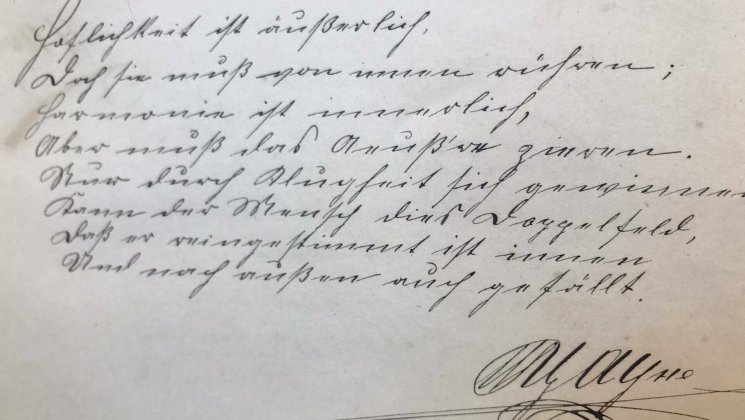 Höflichkeit ist äußerlich,
Doch sie muß von innen rühren;
Harmonie ist innerlich,
Aber muß das Aeuß're zieren.
Nur durch Klugheit sich gewinnen
Kann der Mensch dies Doppelfeld,
Daß er reingestimmt ist innen
Und nach außen auch gefällt.